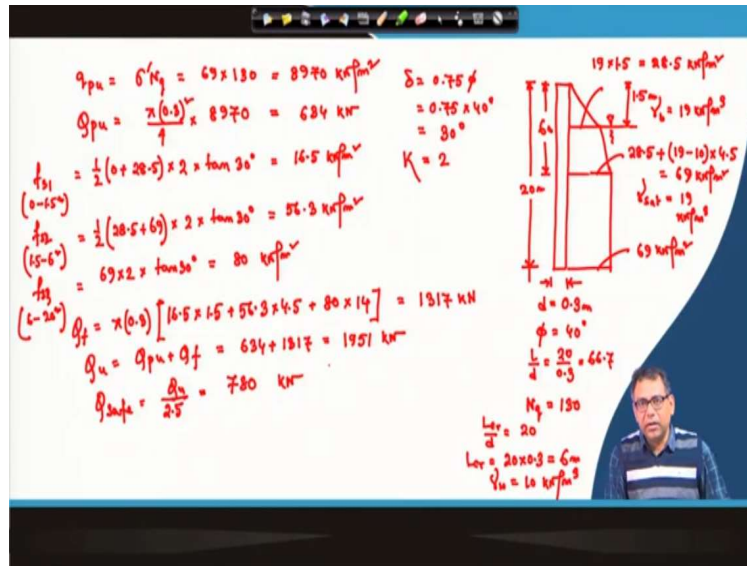 qpu = σ'Nq = 69×130 = 8970 kN/m²
Qpu = π(0.3)²/4 × 8970 = 634 kN
fs1 = 1/2(0+28.5)×2×tan30° = 16.5 kN/m²
(0-1.5m)
fs2 = 1/2(28.5+69)×2×tan30° = 56.3 kN/m²
(1.5-6m)
fs3 = 69×2×tan30° = 80 kN/m²
(6-20m)
Qf = π(0.3)[16.5×1.5+56.3×4.5+80×14] = 1317 kN
Qu = Qpu+Qf = 634+1317 = 1951 kN
Qsafe = Qu/2.5 = 780 kN
δ = 0.75φ
= 0.75×40°
= 30°
K = 2
19×1.5 = 28.5 kN/m²
1.5m
γb = 19 kN/m³
6m
28.5+(19-10)×4.5
= 69 kN/m²
20m
γsat = 19
kN/m³
69 kN/m²
d = 0.3m
φ = 40°
L/d = 20/0.3 = 66.7
Nq = 130
Lcr/d = 20
Lcr = 20×0.3 = 6m
γw = 10 kN/m³